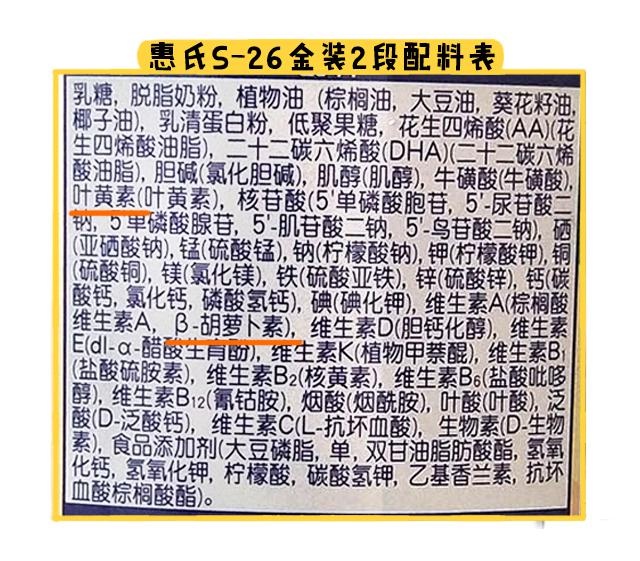 惠氏S-26金装2段配料表
乳糖, 脱脂奶粉, 植物油 (棕榈油, 大豆油, 葵花籽油,
椰子油), 乳清蛋白粉, 低聚果糖, 花生四烯酸(AA)(花
生四烯酸油脂), 二十二碳六烯酸(DHA)(二十二碳六烯
酸油脂), 胆碱(氯化胆碱), 肌醇(肌醇), 牛磺酸(牛磺酸),
叶黄素(叶黄素), 核苷酸(5'单磷酸胞苷, 5'-尿苷酸二
钠, 5'单磷酸腺苷, 5'-肌苷酸二钠, 5'-鸟苷酸二钠), 硒
(亚硒酸钠), 锰(硫酸锰), 钠(柠檬酸钠), 钾(柠檬酸钾), 铜
(硫酸铜), 镁(氯化镁), 铁(硫酸亚铁), 锌(硫酸锌), 钙(碳
酸钙, 氯化钙, 磷酸氢钙), 碘(碘化钾), 维生素A(棕榈酸
维生素A, β-胡萝卜素), 维生素D(胆钙化醇), 维生素
E(dl-α-醋酸生育酚), 维生素K(植物甲萘醌), 维生素B₁
(盐酸硫胺素), 维生素B₂(核黄素), 维生素B₆(盐酸吡哆
醇), 维生素B₁₂(氰钴胺), 烟酸(烟酰胺), 叶酸(叶酸), 泛
酸(D-泛酸钙), 维生素C(L-抗坏血酸), 生物素(D-生物
素), 食品添加剂(大豆磷脂, 单, 双甘油脂肪酸酯, 氢氧
化钙, 氢氧化钾, 柠檬酸, 碳酸氢钾, 乙基香兰素, 抗坏
血酸棕榈酸酯)。